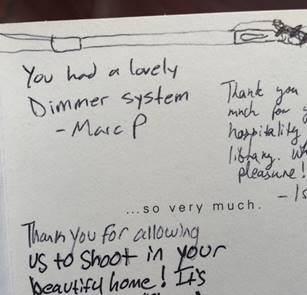 You had a lovely
Dimmer system
- Marc P
Thank you
much for y
hospitality
library. W
pleasure!
- Is
...so very much.
Thank you for allowing
us to shoot in your
beautiful home! It's